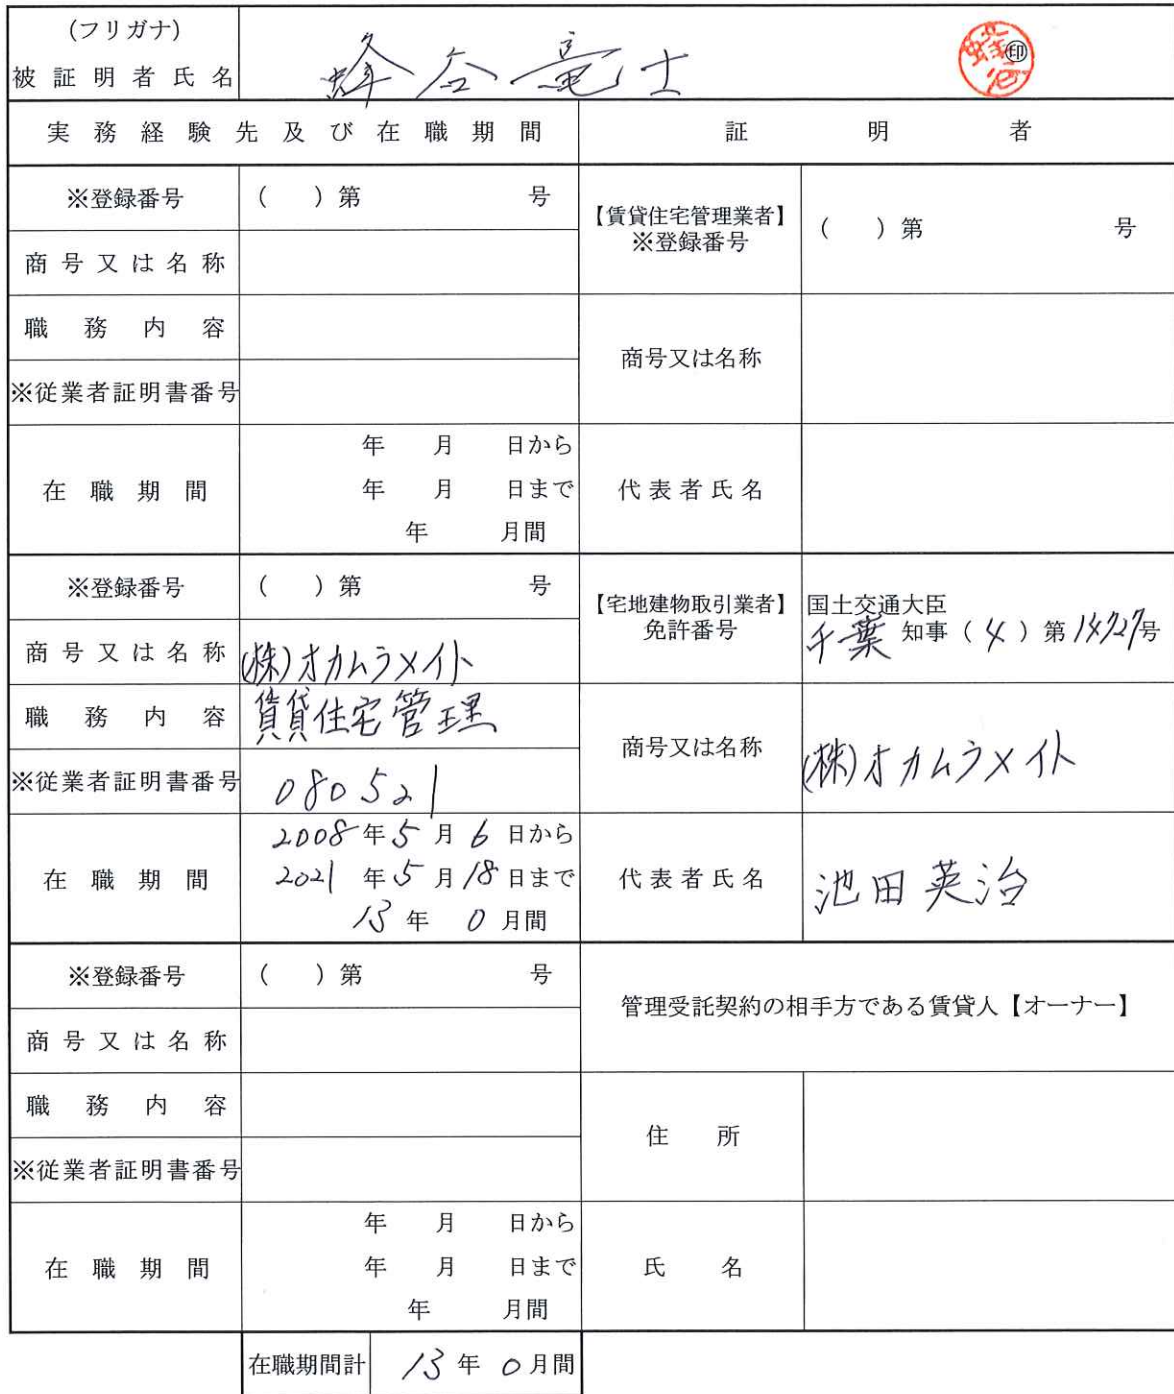 (フリガナ)
被証明者氏名 蜂谷竜士 ㊞
実務経験先及び在職期間 証明者
※登録番号 ( )第 号
【賃貸住宅管理業者】
※登録番号 ( )第 号
商号又は名称
職務内容
商号又は名称
※従業者証明書番号
在職期間 年 月 日から
年 月 日まで
年 月間
代表者氏名
※登録番号 ( )第 号
【宅地建物取引業者】
免許番号
国土交通大臣
千葉 知事(4)第14727号
商号又は名称 (株)オカムラメイト
職務内容 賃貸住宅管理
商号又は名称 (株)オカムラメイト
※従業者証明書番号 080521
在職期間 2008年5月6日から
2021年5月18日まで
13年0月間
代表者氏名 池田英治
※登録番号 ( )第 号
管理受託契約の相手方である賃貸人【オーナー】
商号又は名称
職務内容
住所
※従業者証明書番号
在職期間 年 月 日から
年 月 日まで
年 月間
氏名
在職期間計 13年0月間